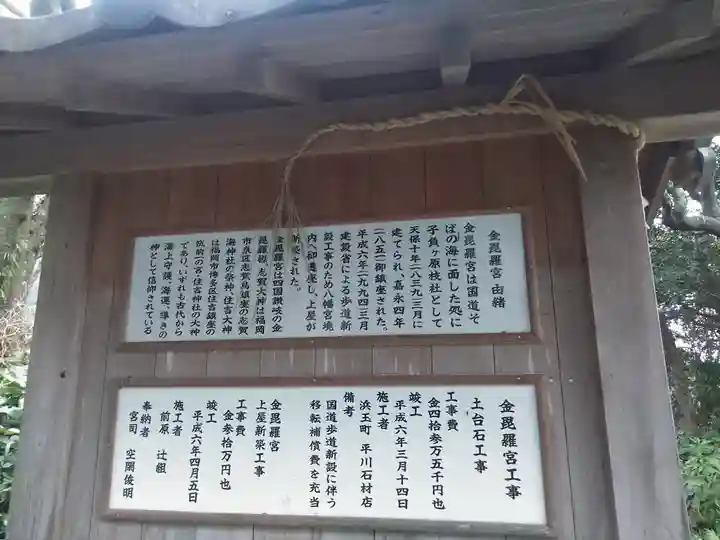 金毘羅宮 由緒
金毘羅宮は国道そ
ばの海に面した処に
子負ヶ原枝社として
天保十年(一八三九)三月に
建てられ、嘉永四年
(一八五一)御鎮座された。
平成六年(一九九四)三月
建設省による歩道新
設工事のため八幡宮境
内へ御遷座し、上屋が
新築された。
金毘羅宮は四国讃岐の金
毘羅樣、志賀大神は福岡
市東区志賀島鎮座の志賀
海神社の祭神、住吉大神
は福岡市博多区住吉鎮座の
筑前一の宮・住吉神社の大神
であり、いずれも古代から
海上守護、海運、導きの
神として信仰されている
金毘羅宮工事
土台石工事
工事費
金四拾参万五千円也
竣工
平成六年三月十四日
施工者
浜玉町 平川石材店
備考
国道歩道新設に伴う
移転補償費を充当
金毘羅宮
上屋新築工事
工事費
金参拾万円也
竣工
平成六年四月五日
施工者
前原 辻組
奉納者
宮司 空閑俊明